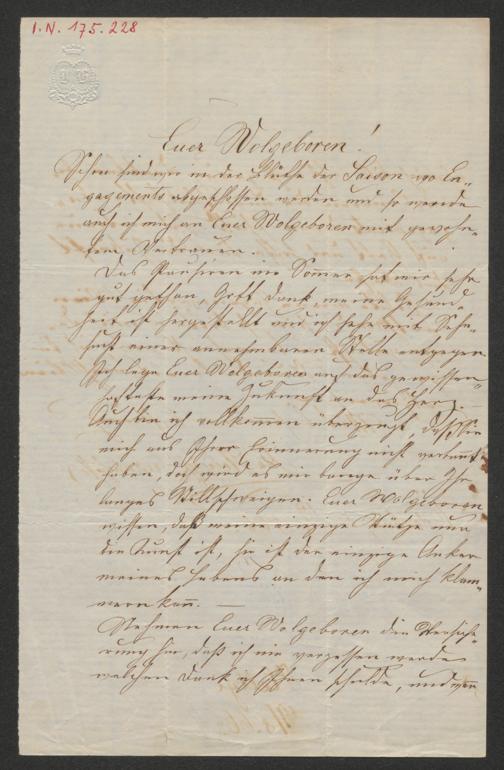 I.N. 175.228
Euer Wolgeboren!
Schon sind wir in der Blüthe der Saison wo En-
gagements abgeschlossen werden und so wende
auch ich mich an Euer Wolgeboren mit gewohn-
tem Vertrauen.
Das Pausiren im Sommer hat mir sehr
gut gethan, Gott Dank, meine Gesund-
heit ist hergestellt und ich sehe mit Sehn-
sucht einer annehmbaren Stelle entgegen.
Ich lege Euer Wolgeboren auf das gewissen-
hafteste meine Zukunft an das Herz.
Auch bin ich vollkommen überzeugt, daß Sie
mich aus Ihrer Erinnerung nicht verbannt
haben, doch wird es mir bange über Ihr
langes Stillschweigen. Euer Wolgeboren
wissen, daß meine einzige Stütze nur
die Kunst ist, sie ist der einzige Anker
meines Lebens an den ich mich klam-
mern kann. —
Nehmen Euer Wolgeboren die Versiche-
rung hin, daß ich nie vergessen werde
welchen Dank ich Ihnen schulde, und wenn